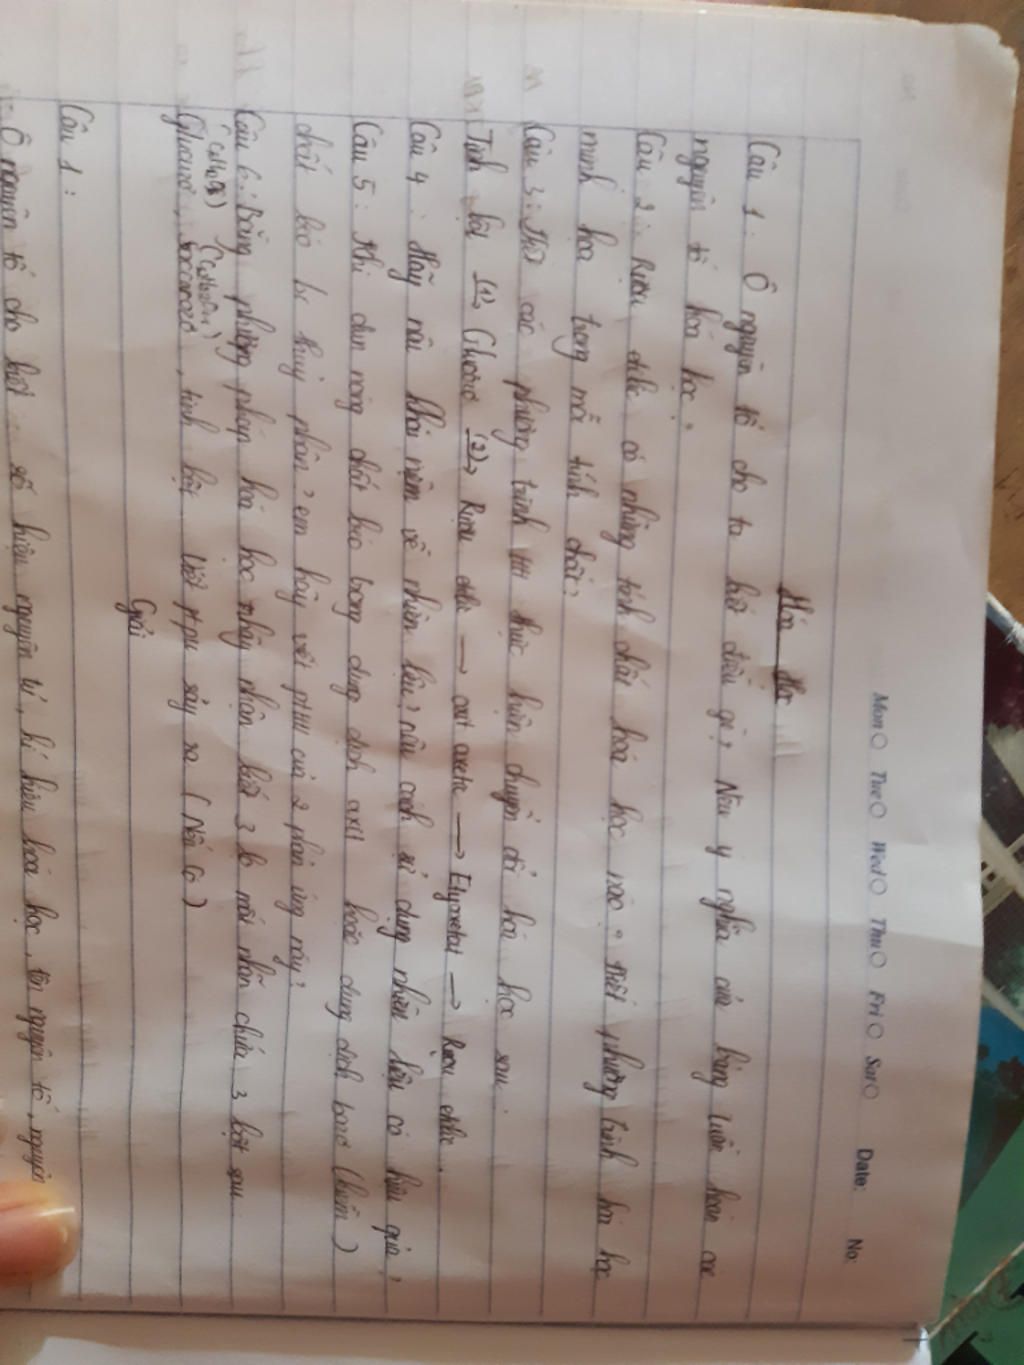 Mon Tue Wed Thu Fri Sat Date: No:
Hóa Học
Câu 1: Ô nguyên tố cho ta biết điều gì? Nêu ý nghĩa của bảng tuần hoàn các
nguyên tố hóa học?
Câu 2: Rượu etilic có những tính chất hóa học nào? Viết phương trình hóa học
minh họa trong mỗi tính chất?
Câu 3: Viết các phương trình thực hiện chuyển đổi hóa học sau:
Tinh bột (1)→ Glucozơ (2)→ Rượu etilic → axit axetic → Etyaxetat → Rượu etilic.
Câu 4: Hãy nêu khái niệm về nhiên liệu? nêu cách sử dụng nhiên liệu có hiệu quả?
Câu 5: Khi đun nóng chất béo trong dung dịch axit hoặc dung dịch bazơ (kiềm)
chất béo bị thủy phân, em hãy viết ptHH của 2 phản ứng này?
Câu 6: Bằng phương pháp hóa học nhận biết 3 lọ mất nhãn chứa 3 bột sau:
Glucozơ, saccarozơ, tinh bột. Viết ptpu xảy ra (Nếu có)
Giải
Câu 1:
Ô nguyên tố cho biết số hiệu nguyên tử, kí hiệu hóa học, tên nguyên tố, nguyên